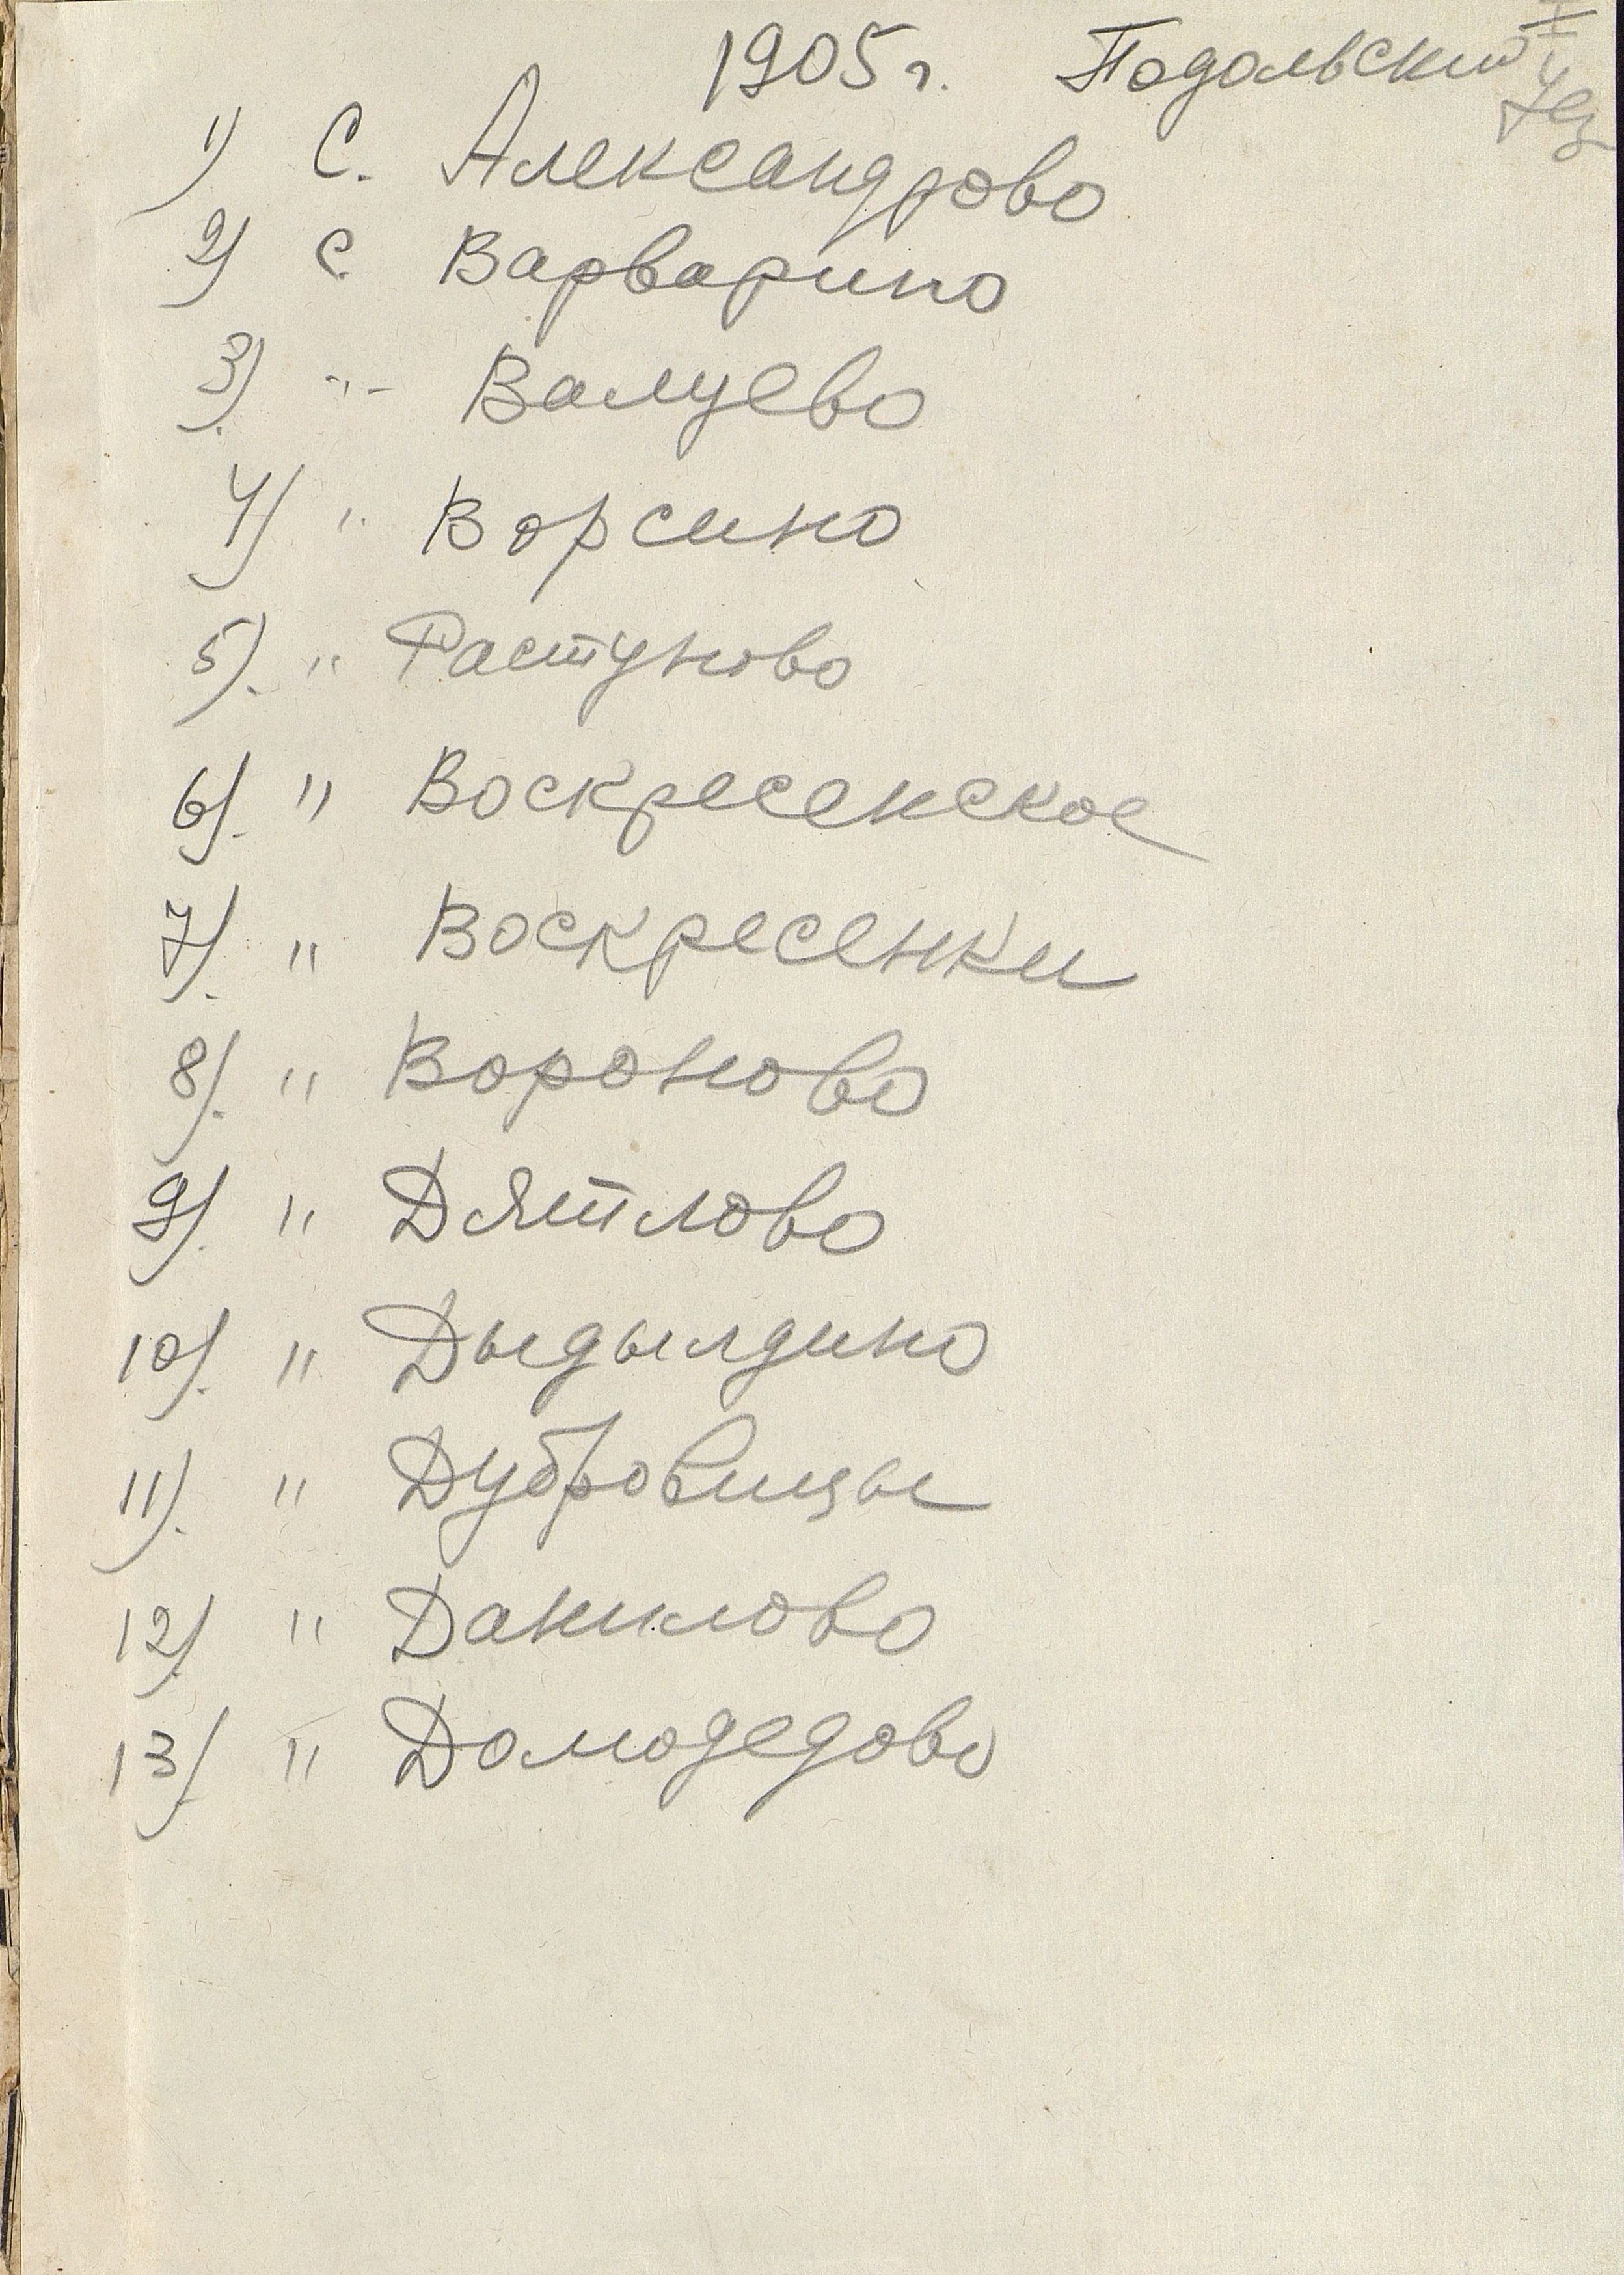 I
1905 г. Подольский
Уез
1) С. Александрово
2) С. Варварино
3) -"- Валуево
4) " Ворсино
5). " Растуново
6). " Воскресенское
7). " Воскресенки
8). " Вороново
9). " Дятлово
10). " Дыдылдино
11). " Дубровицы
12). " Данилово
13). " Домодедово